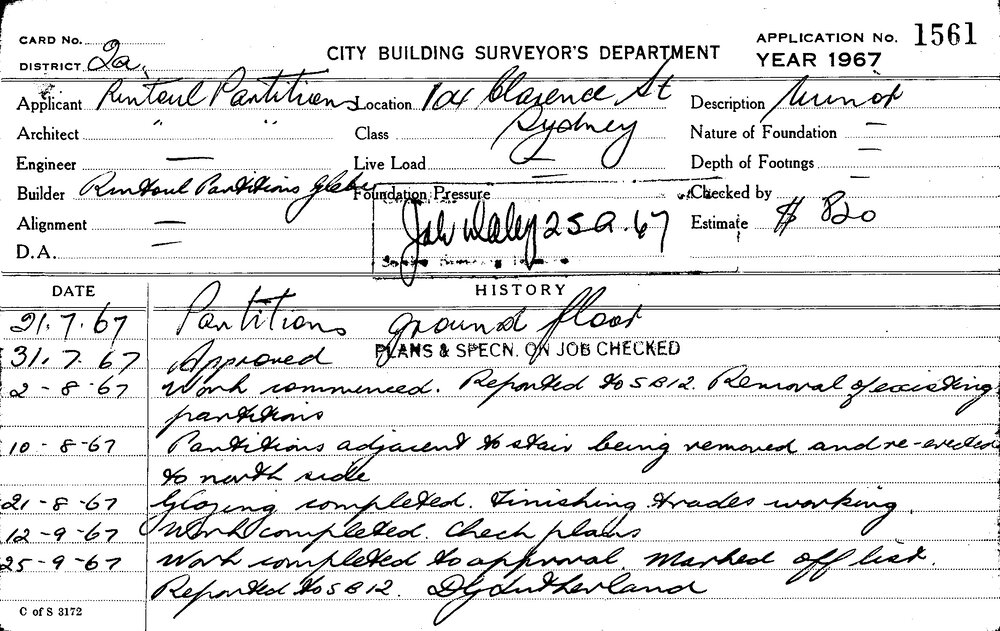 CARD No.
DISTRICT 2a.
CITY BUILDING SURVEYOR'S DEPARTMENT
APPLICATION No. 1561
YEAR 1967
Applicant Rintoul Partitions Location 104 Clarence St Description Minor
Architect " " Class Sydney Nature of Foundation —
Engineer — Live Load — Depth of Footings —
Builder Rintoul Partitions Glebe Foundation Pressure Checked by —
Alignment — 25 9.67 Estimate $ 820
D.A. —
DATE HISTORY
21.7.67 Partitions ground floor
31.7.67 Approved PLANS & SPECN. ON JOB CHECKED
2-8-67 Work commenced. Reported to SB12. Removal of existing
partitions
10-8-67 Partitions adjacent to stair being removed and re-erected
to north side
21-8-67 Glazing completed. Finishing trades working.
12-9-67 Work completed. Check plans
25-9-67 Work completed to approval. Marked off list.
Reported to SB12. DGSutherland
C of S 3172